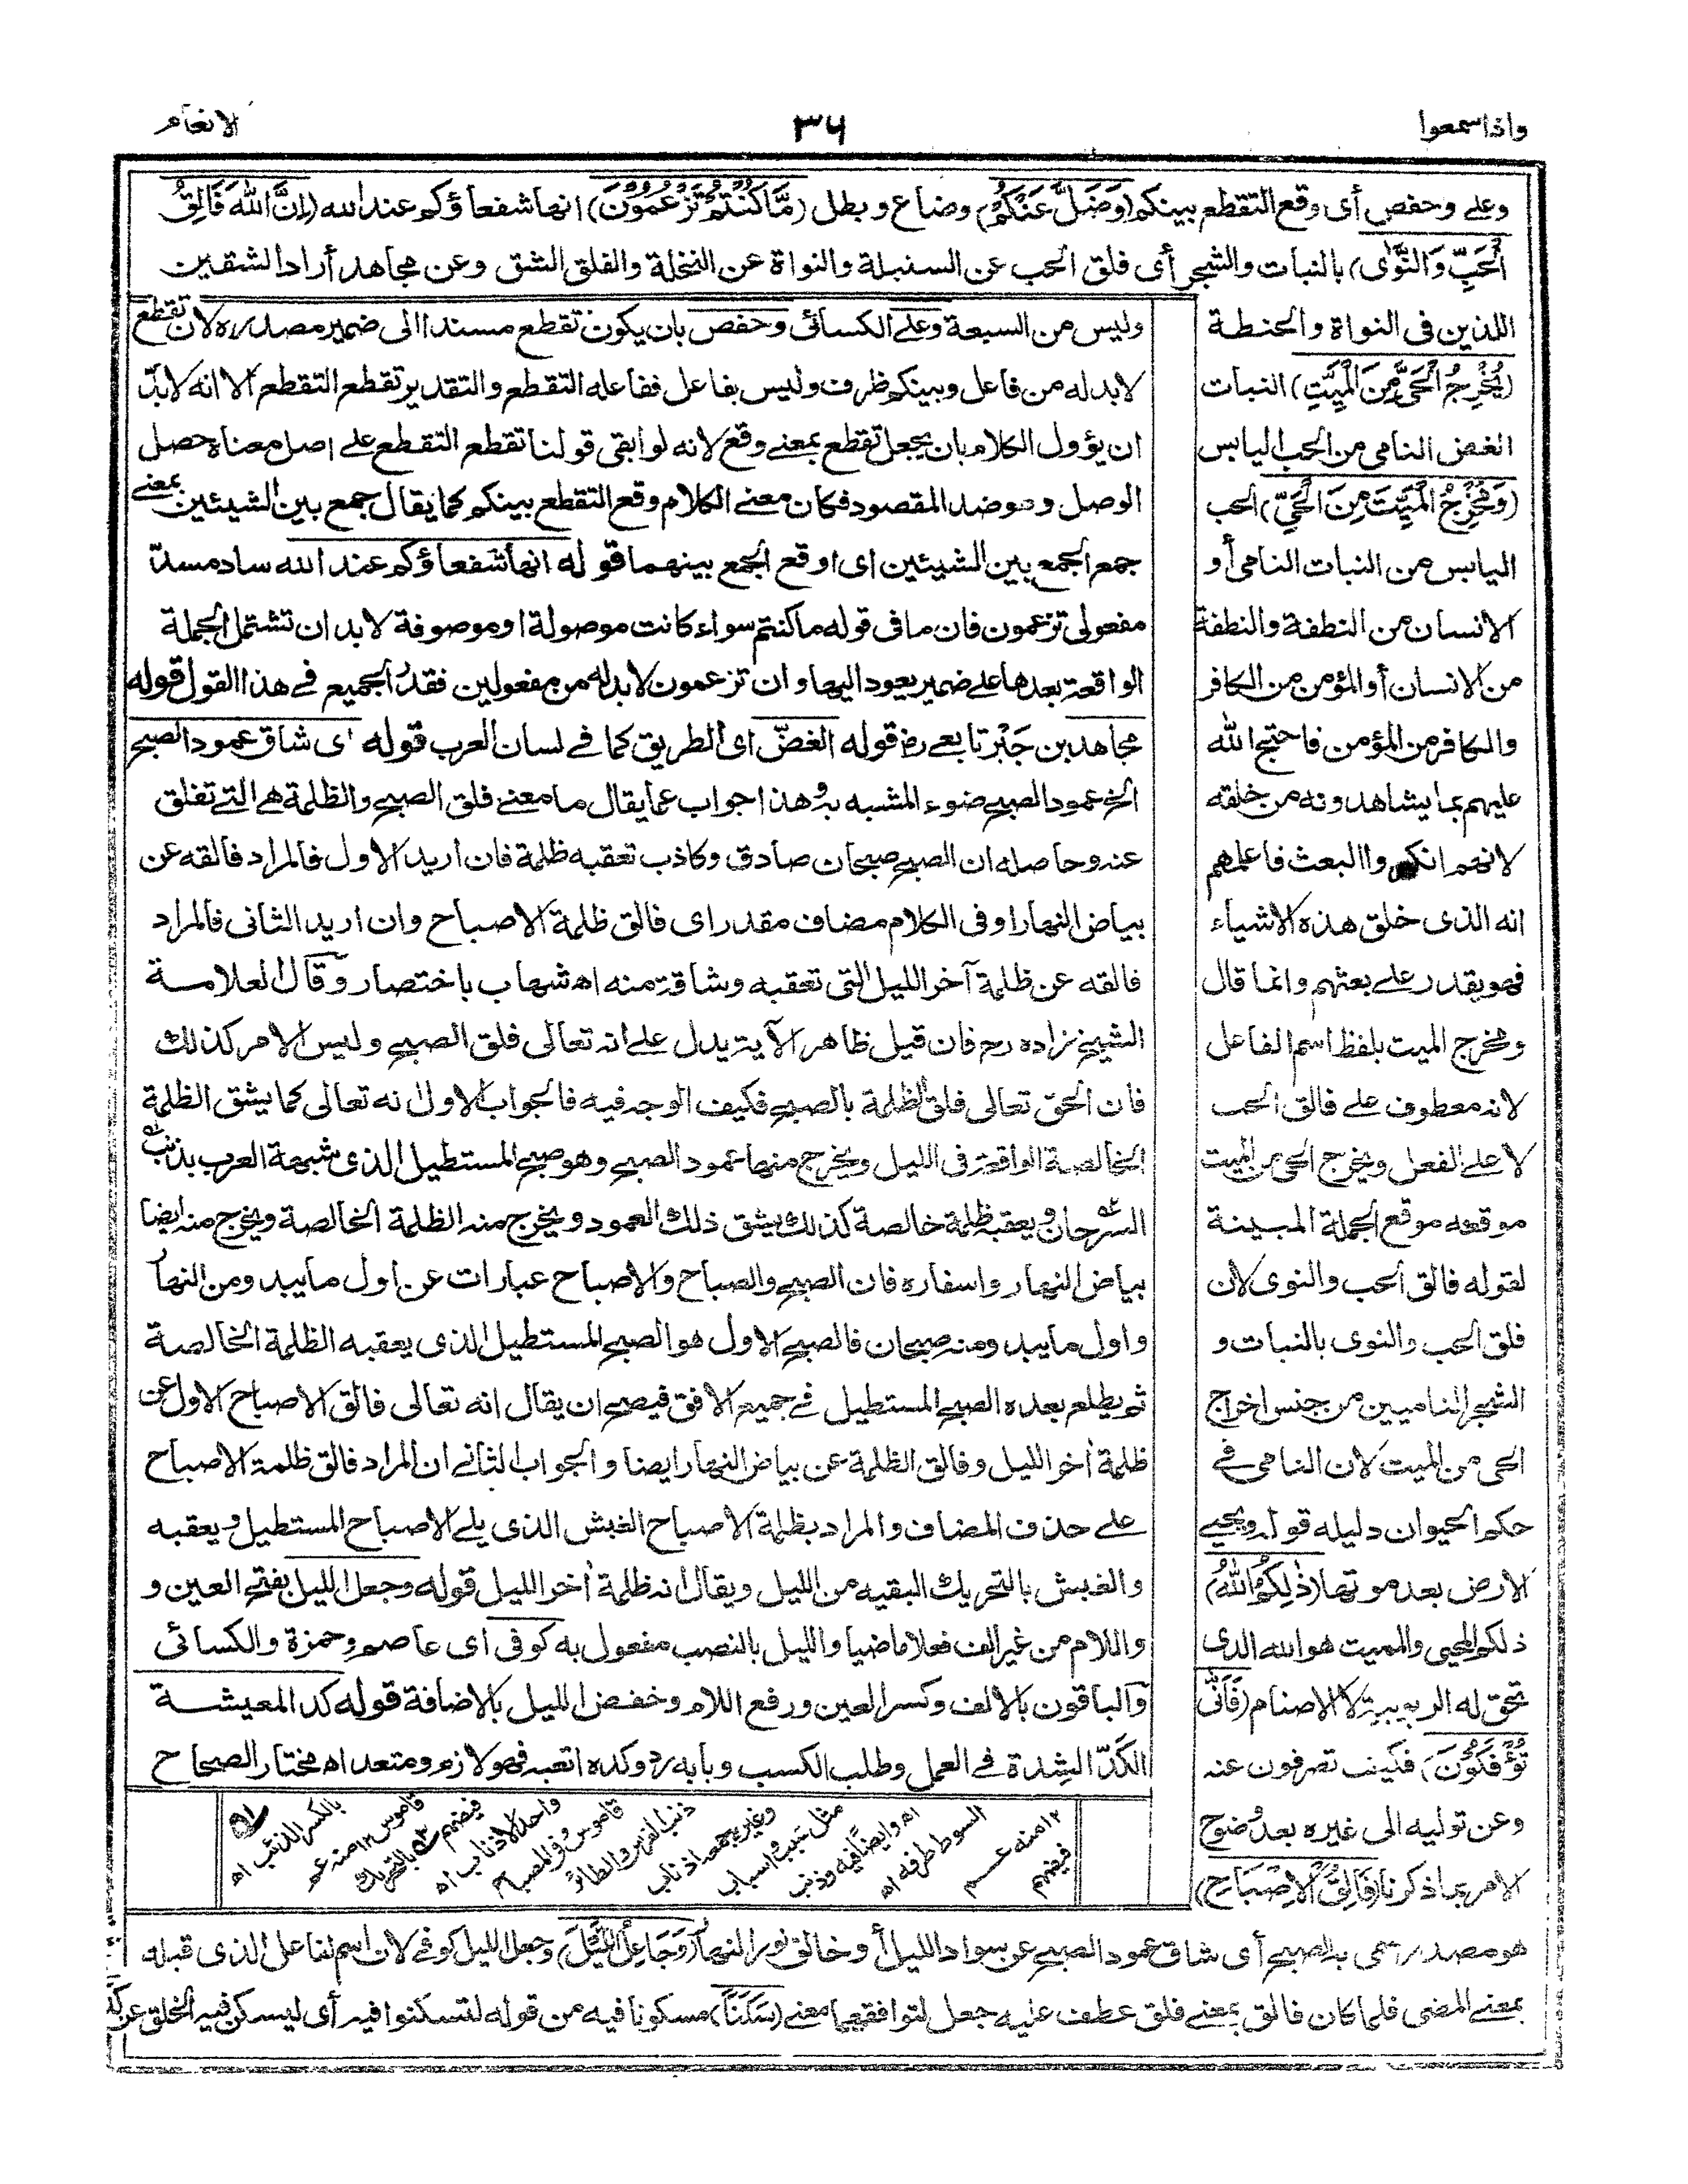 واذا سمعوا
٣٦
الانعام
وعلى وحفص أى وقع التقطع بينكم (وَضَلَّ عَنكُم) وضاع وبطل (مَّا كُنتُمْ تَزْعُمُونَ) انها شفعاؤكم عند الله (إِنَّ اللهَ فَالِقُ
الْحَبِّ وَالنَّوَى) بالنبات والشجر أى فلق الحب عن السنبلة والنواة عن النخلة والفلق الشق وعن مجاهد أراد الشقين
اللذين فى النواة والحنطة
(يُخْرِجُ الْحَيَّ مِنَ الْمَيِّتِ) النبات
الغض النامى من الحب اليابس
(وَمُخْرِجُ الْمَيِّتَ مِنَ الْحَيِّ) الحب
اليابس من النبات النامى أو
الانسان من النطفة والنطفة
من الانسان أو المؤمن من الكافر
والكافر من المؤمن فاحتج الله
عليهم بما يشاهدونه من خلقه
لانهم انكروا البعث فاعلمهم
انه الذى خلق هذه الاشياء
فهو يقدر على بعثهم وانما قال
ومخرج الميت بلفظ اسم الفاعل
لانه معطوف على فالق الحب
لا على الفعل ويخرج الحى من الميت
موقعه موقع الجملة المبينة
لقوله فالق الحب والنوى لان
فلق الحب والنوى بالنبات و
الشجر الناميين من جنس اخراج
الحى من الميت لان النامى فى
حكم الحيوان دليله قوله ويحيى
الارض بعد موتها (ذَلِكُمُ اللهُ)
ذلكم المحيى والمميت هو الله الذى
تحق له الربوبية لا الاصنام (فَأَنَّى
تُؤْفَكُونَ) فكيف تصرفون عنه
وعن توليه الى غيره بعد وضوح
الامر بما ذكرنا (فَالِقُ الْإِصْبَاحِ)
وليس من السبعة وعلى الكسائى وحفص بان يكون تقطع مسندا الى ضمير مصدره لان تقطع
لا بد له من فاعل وبينكم ظرف وليس بفاعل ففاعله التقطع والتقدير تقطع التقطع الا انه لا بدّ
ان يؤول الكلام بان يجعل تقطع بمعنى وقع لانه لو ابقى قولنا تقطع التقطع على اصل معناه حصل
الوصل وهو ضد المقصود فكان معنى الكلام وقع التقطع بينكم كما يقال جمع بين الشيئين بمعنى
جمع الجمع بين الشيئين اى اوقع الجمع بينهما قوله انها شفعاؤكم عند الله ساد مسدّ
مفعولى تزعمون فان ما فى قوله ما كنتم سواء كانت موصولة او موصوفة لا بد ان تشتمل الجملة
الواقعة بعدها على ضمير يعود اليها وان تزعمون لا بد له من مفعولين فقدر الجميع فى هذا القول قوله
مجاهد بن جَبْر تابعى رض قوله الغضّ اى الطريق كما فى لسان العرب قوله اى شاق عمود الصبح
الخ عمود الصبح ضوء المشبه به وهذا جواب عما يقال ما معنى فلق الصبح والظلمة هى التى تفلق
عنه وحاصله ان الصبح صبحان صادق وكاذب تعقبه ظلمة فان اريد الاول فالمراد فالقه عن
بياض النهار او فى الكلام مضاف مقدر اى فالق ظلمة الاصباح وان اريد الثانى فالمراد
فالقه عن ظلمة آخر الليل التى تعقبه وشاقة منه اه شهاب باختصار وقال العلامة
الشيخ زاده رح فان قيل ظاهر الآية يدل على انه تعالى فلق الصبح وليس الامر كذلك
فان الحق تعالى فلق الظلمة بالصبح فكيف الوجه فيه فالجواب الاول انه تعالى كما يشق الظلمة
الخالصة الواقعة فى الليل ويخرج منها عمود الصبح وهو صبح المستطيل الذى شبهة العرب بذنب
السرحان ويعقبه ظلمة خالصة كذلك يشق ذلك العمود ويخرج منه الظلمة الخالصة ويخرج منه ايضا
بياض النهار واسفاره فان الصبح والصباح والاصباح عبارات عن اول ما يبدو من النهار
واول ما يبدو منه صبحان فالصبح الاول هو الصبح المستطيل الذى يعقبه الظلمة الخالصة
ثم يطلع بعده الصبح المستطيل فى جميع الافق فيصح ان يقال انه تعالى فالق الاصباح الاول عن
ظلمة أخر الليل وفالق الظلمة عن بياض النهار ايضا والجواب الثانى ان المراد فالق ظلمة الاصباح
على حذف المضاف والمراد بظلمة الاصباح الغبش الذى يلى الاصباح المستطيل ويعقبه
والغبش بالتحريك البقيه من الليل ويقال انه ظلمة أخر الليل قوله وجعل الليل بفتح العين و
واللام من غير الف فعلا ماضيا والليل بالنصب مفعول به كوفى اى عاصم وحمزة والكسائى
والباقون بالالف وكسر العين ورفع اللام وخفض الليل بالاضافة قوله كد المعيشة
الكَدّ الشِدة فى العمل وطلب الكسب وبابه رد وكده اتعبه فهو لازم ومتعد اه مختار الصحاح
١٢ منه عم فيضهم
السوط طرفه اه
اه وايضاً فيه وذنب
مثل سبب واسباب
وغيره جمعه اذناب
ذنب الفرس والطائر
قاموس وفى المصباح
واحد الاذناب اه
فيضهم بالتحريك
قاموس ١٢ منه عم
بالكسر الذئب اه
هو مصدر سمى به الصبح أى شاق عمود الصبح عن سواد الليل أو خالق نور النهار (وَجَاعِلُ اللَّيْلَ) وجعل الليل كوفى لان اسم الفاعل الذى قبله
بمعنى المضى فلما كان فالق بمعنى فلق عطف عليه جعل لتوافقهما معنى (سَكَنًا) مسكونا فيه من قوله لتسكنوا فيه أى ليسكن فيه الخلق عن كد